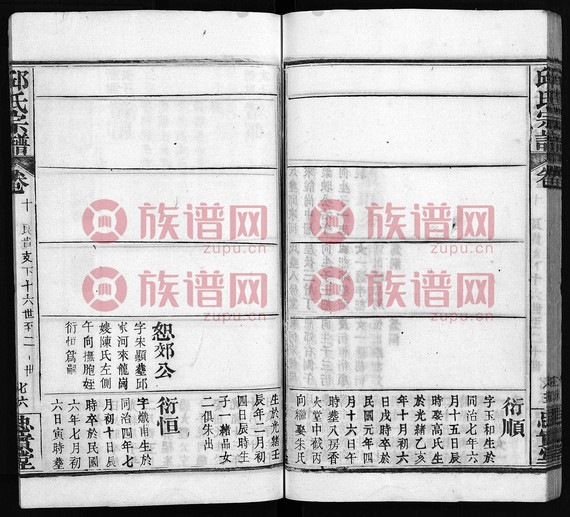 邱氏宗譜
卷
衍順
字玉和生於
同治七年六
月十五日辰
時娶高氏生
於光緒乙亥
年十月初六
日戌時卒於
民國元年四
月十六日午
時塟八房香
火堂中截丙
向繼娶朱氏
生於光緒壬
辰年二月初
四日辰時生
子一 藉品 女
二俱朱出
恕郊公
字朱顯塟邱
家河來龍崗
嫂陳氏左側
午向撫胞姪
衍恒爲嗣
衍恒
字熾甫生於
同治四年七
月初十日辰
時卒於民國
六年七月初
六日寅時塟
邱氏宗譜
卷
十
支下十六世至二
世
族谱网
zupu.cn
族谱网
zupu.cn
族谱网
zupu.cn
族谱网
zupu.cn